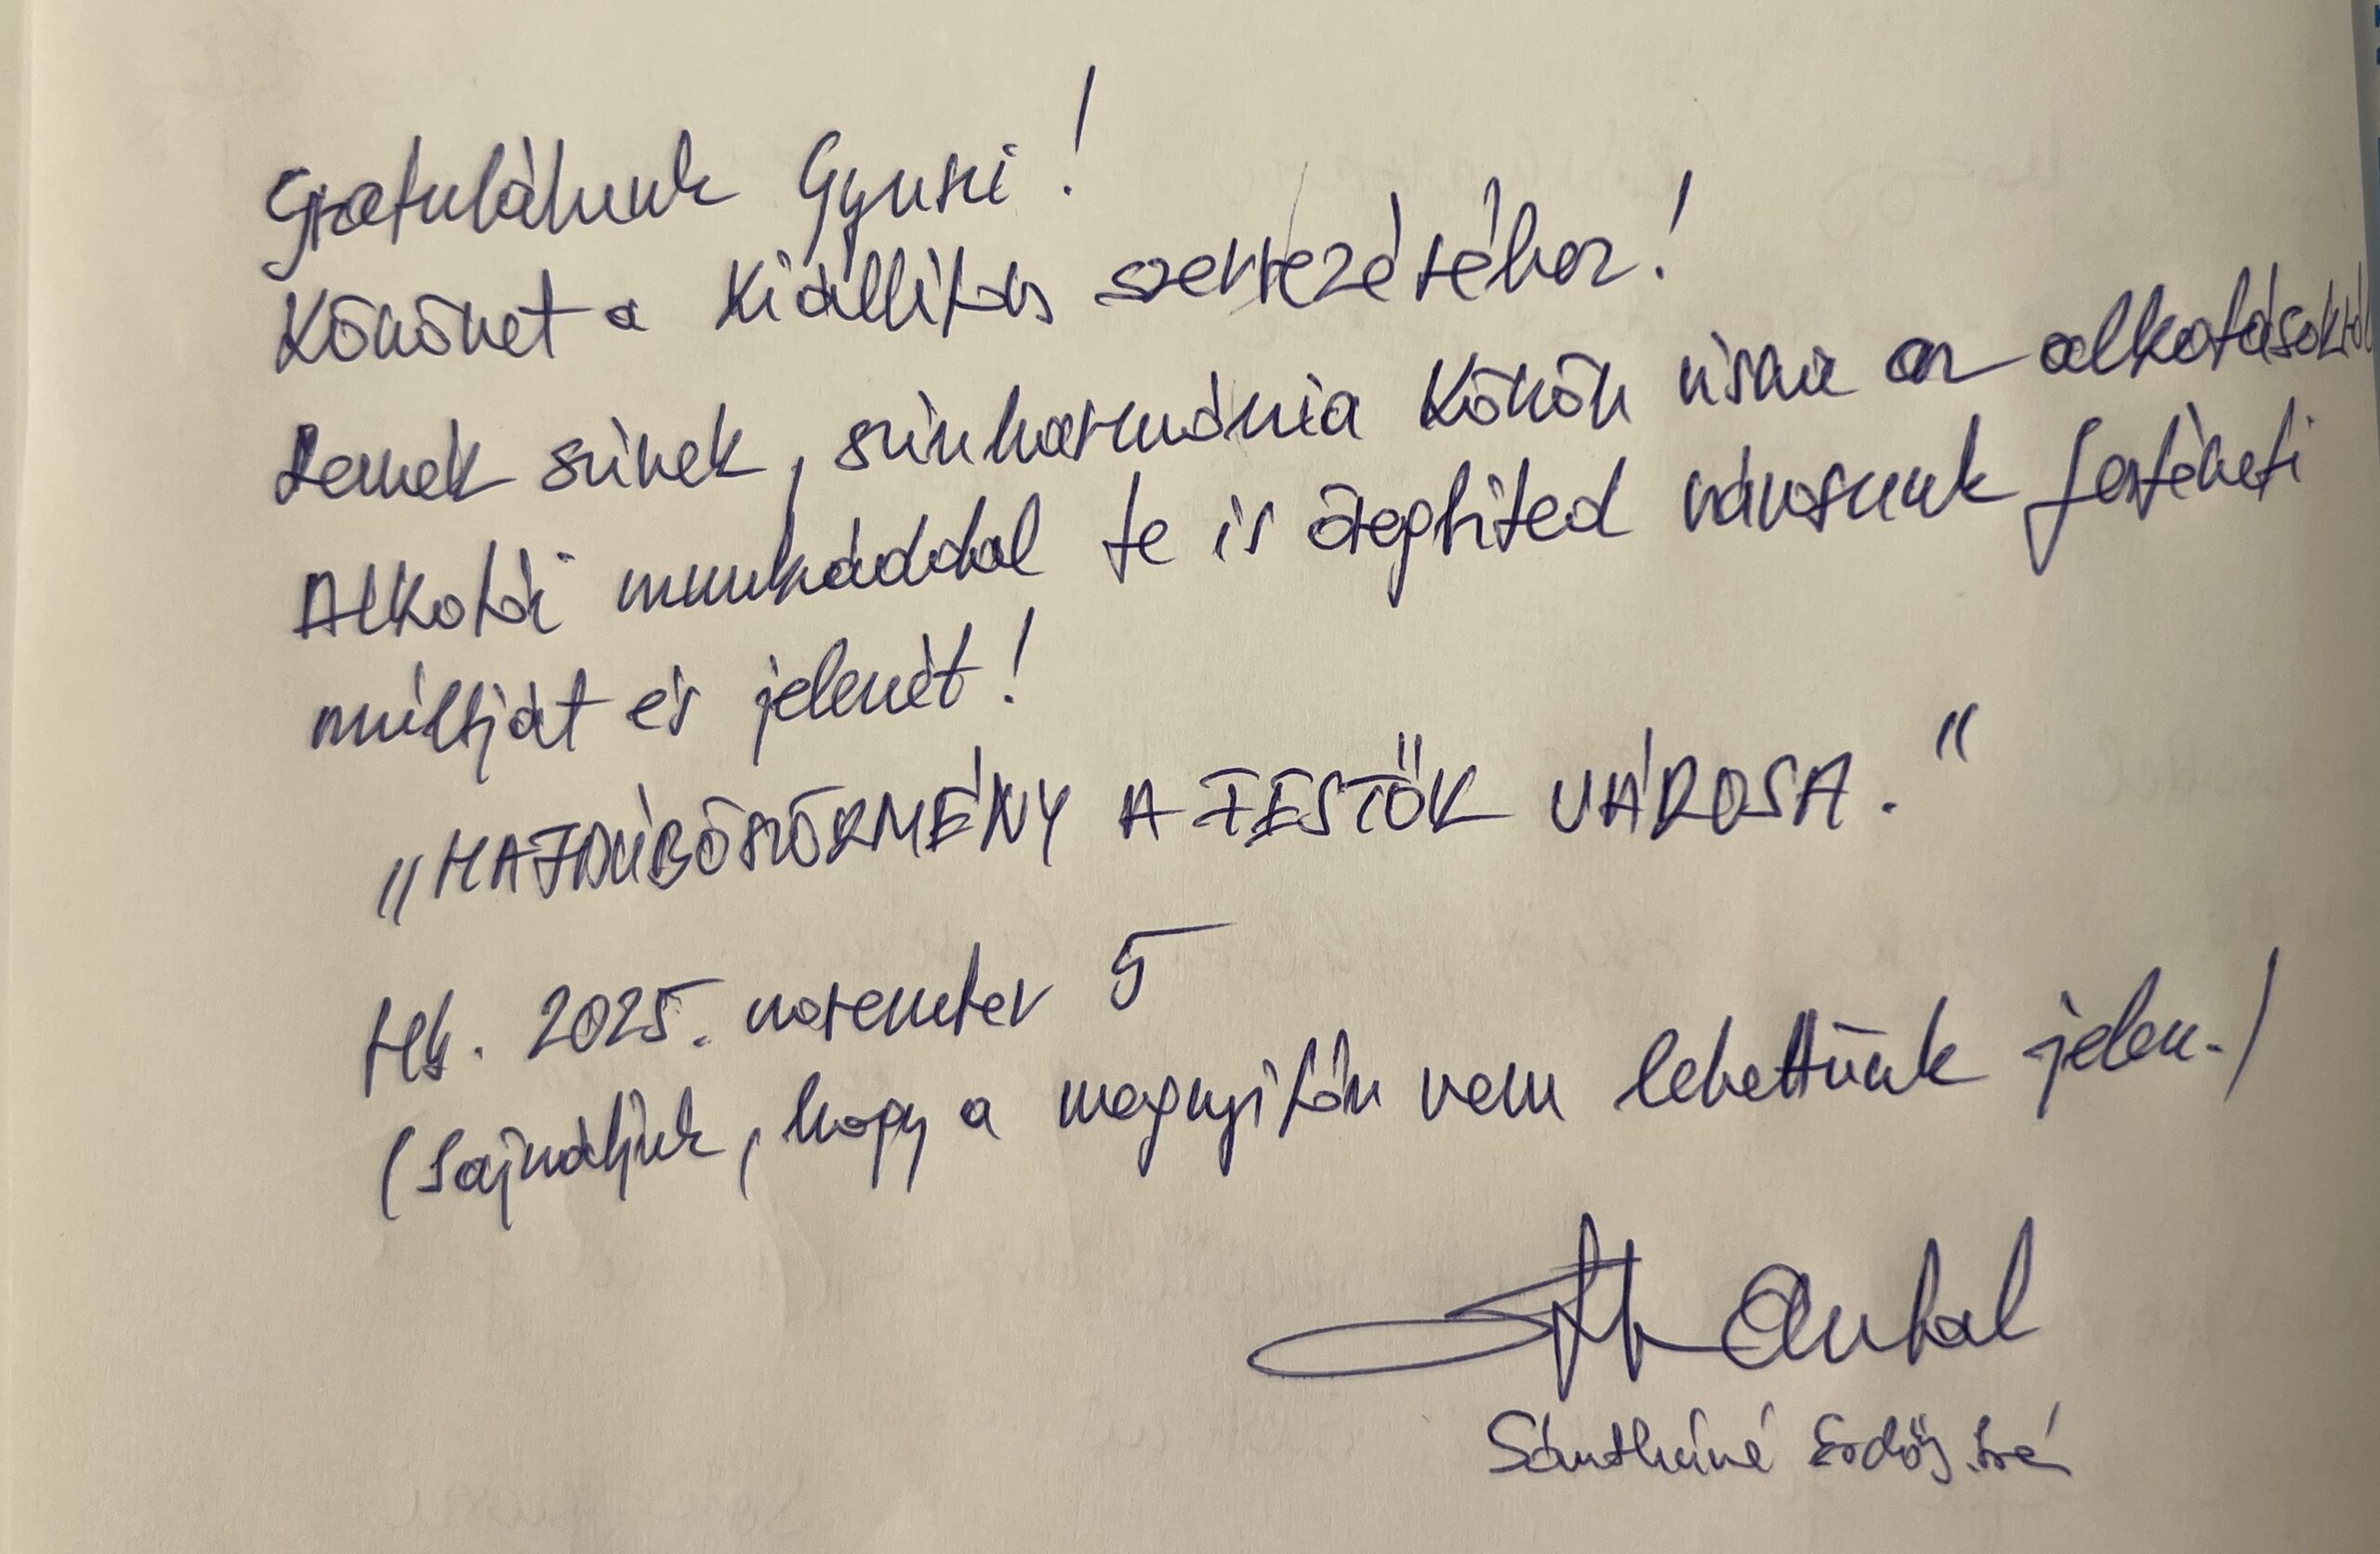 Gratulálunk Gyuszi!
Köszönet a kiállítás szervezéséhez!
Remek színek, színharmónia köszön vissza az alkotásokról
Alkotói munkáddal te is öregbíted városunk festészeti
múltját és jelenét!
„HAJDÚBÖSZÖRMÉNY A FESTŐK VÁROSA."
Hb. 2025. november 5
(Sajnáljuk, hogy a megnyitón nem lehettünk jelen.)
Antal
Sántháné Erdős